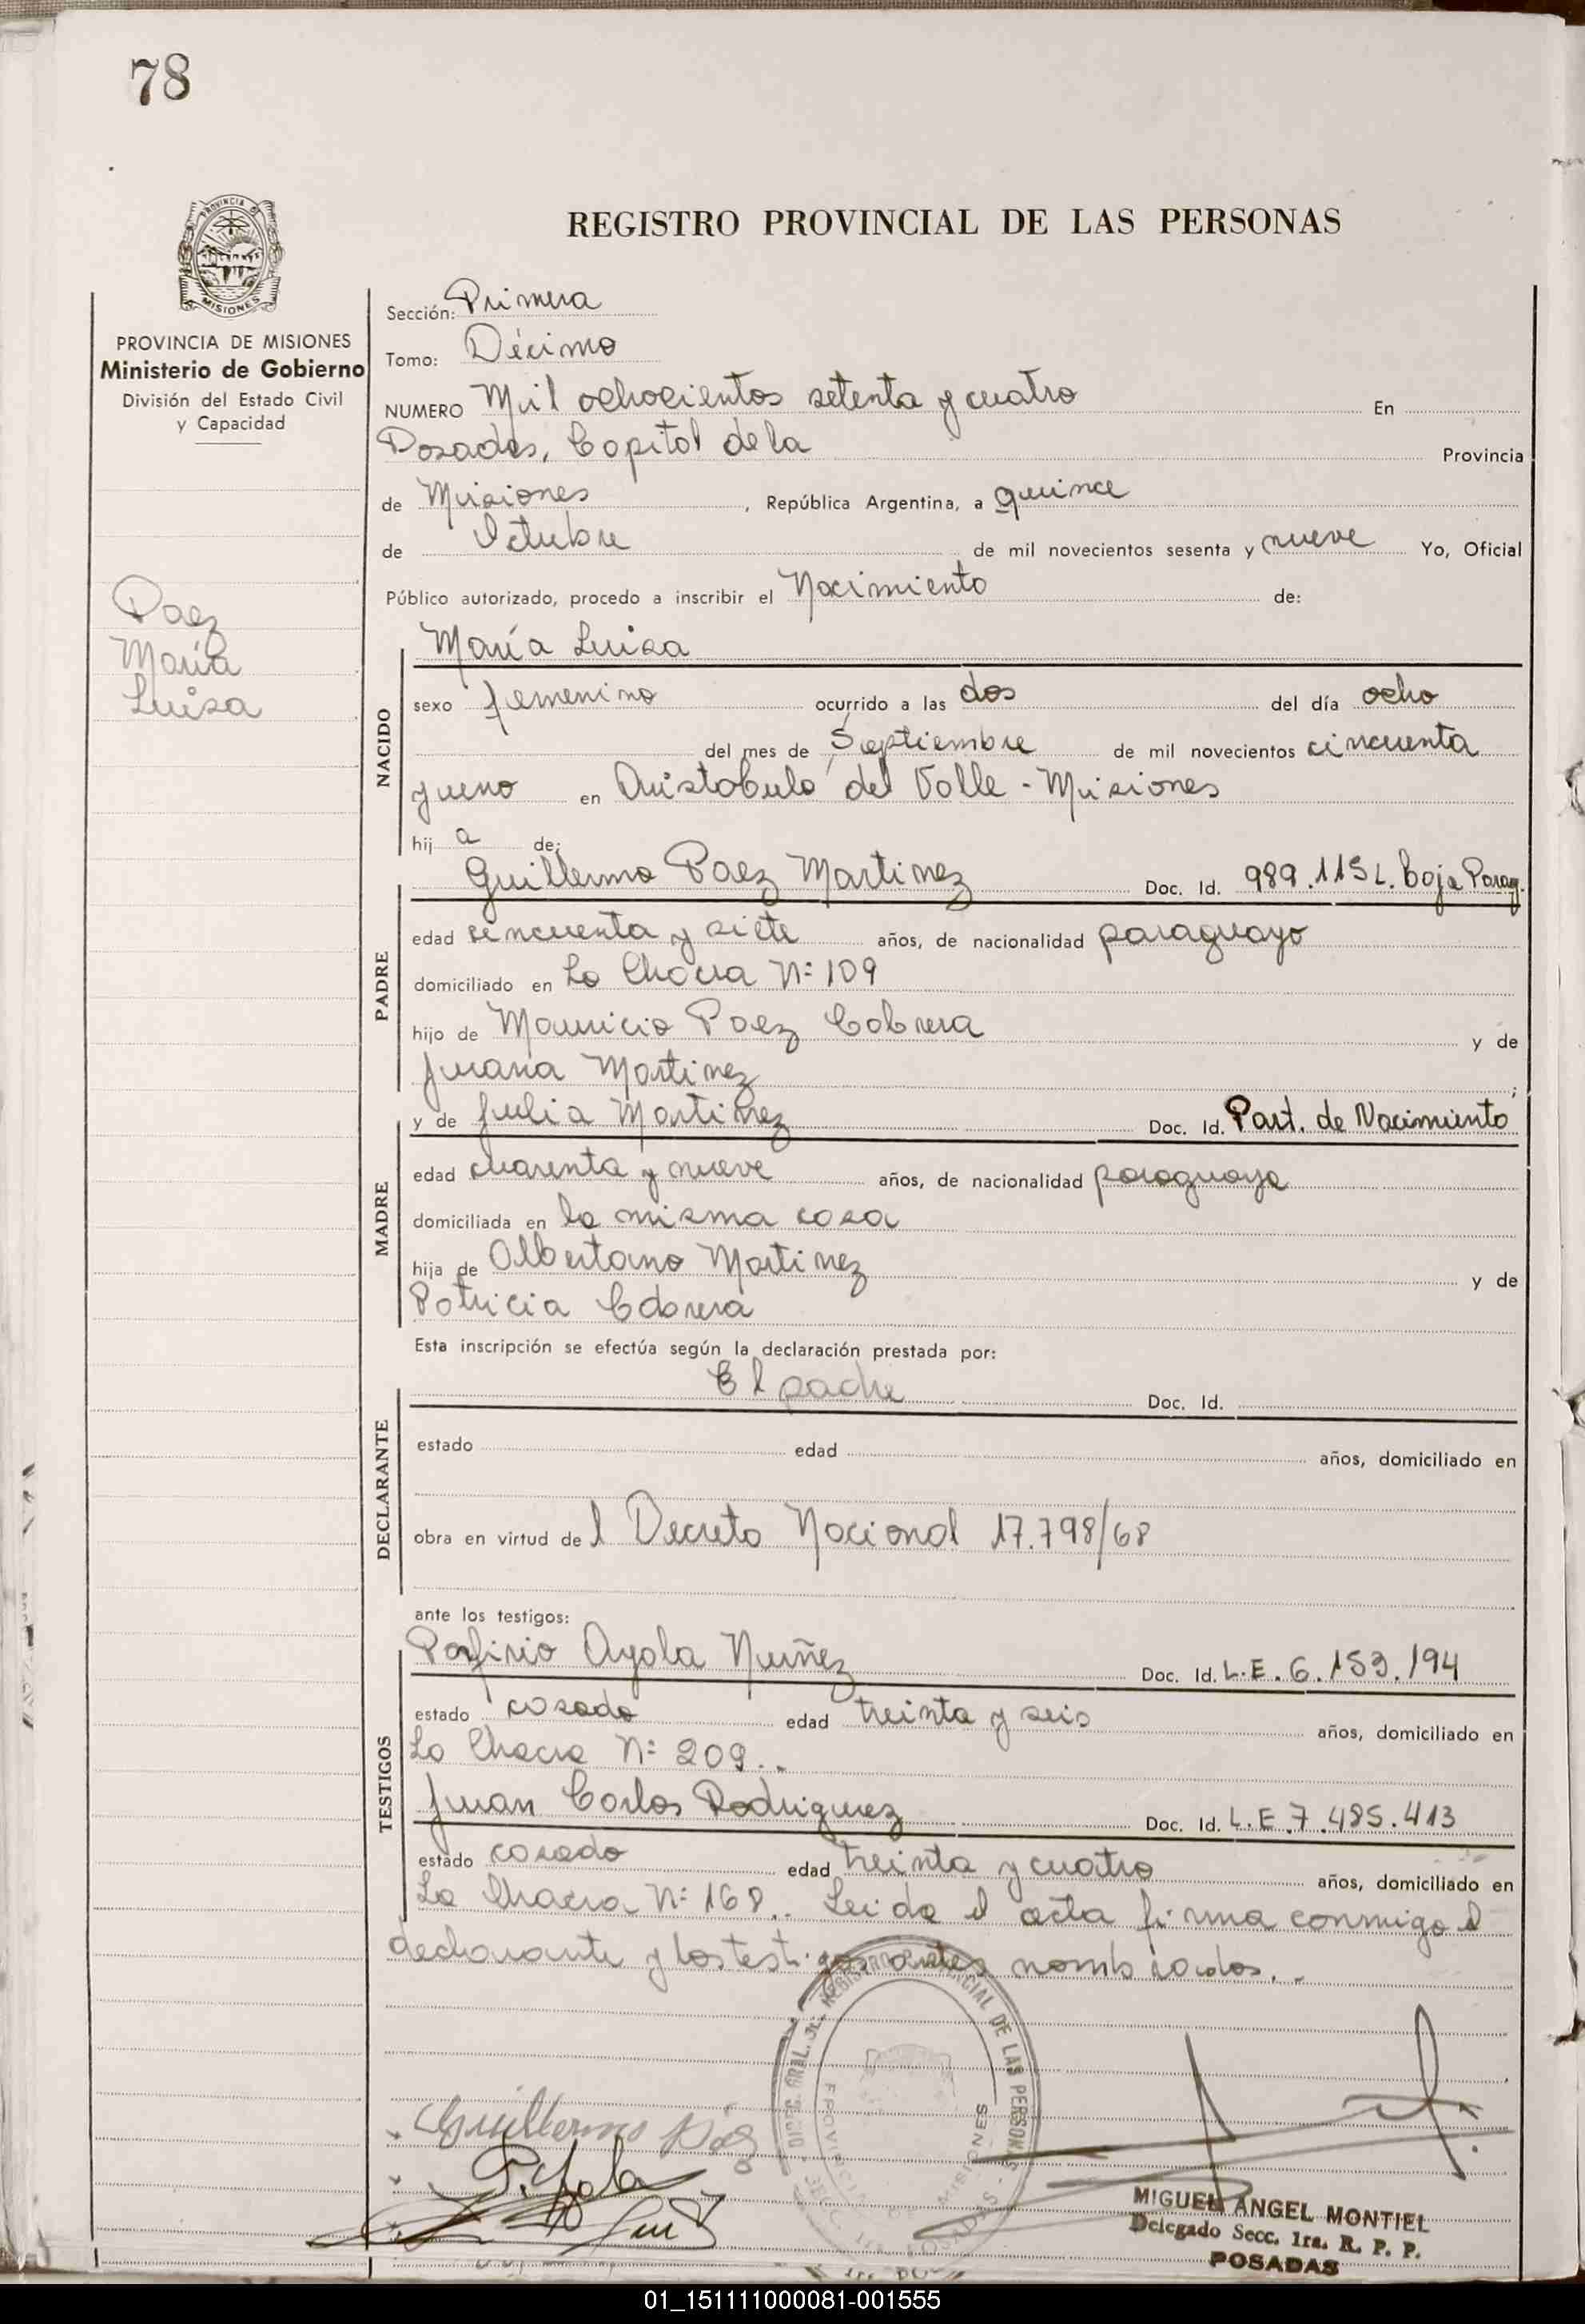 78
PROVINCIA DE
MISIONES
REGISTRO PROVINCIAL DE LAS PERSONAS
PROVINCIA DE MISIONES
Ministerio de Gobierno
División del Estado Civil
y Capacidad
Paez
María
Luisa
Sección: Primera
Tomo: Décimo
NUMERO Mil ochocientos setenta y cuatro En
Posadas, Capital de la Provincia
de Misiones, República Argentina, a quince
de Octubre de mil novecientos sesenta y nueve Yo, Oficial
Público autorizado, procedo a inscribir el Nacimiento de:
NACIDO
María Luisa
sexo femenino ocurrido a las dos del día ocho
del mes de Septiembre de mil novecientos cincuenta
y uno en Aristobulo del Valle - Misiones
hij a de:
PADRE
Guillermo Paez Martinez Doc. Id. 989.115 L. Caja Parag.
edad cincuenta y siete años, de nacionalidad paraguayo
domiciliado en La Chacra Nº 109
hijo de Mauricio Paez Cabrera y de
Juana Martinez ;
MADRE
y de Julia Martinez Doc. Id. Part. de Nacimiento
edad cuarenta y nueve años, de nacionalidad paraguaya
domiciliada en la misma casa
hija de Albertano Martinez y de
Patricia Cabrera
Esta inscripción se efectúa según la declaración prestada por:
DECLARANTE
El padre Doc. Id.
estado edad años, domiciliado en
obra en virtud de l Decreto Nacional 17.798/68
ante los testigos:
TESTIGOS
Porfirio Ayala Nuñez Doc. Id. L.E. 6.153.194
estado casado edad treinta y seis años, domiciliado en
La Chacra Nº 209..
Juan Carlos Rodriguez Doc. Id. L.E. 7.485.413
estado casado edad treinta y cuatro años, domiciliado en
La Chacra Nº 168.. Leida el acta firma conmigo el
declarante y los testigos antes nombrados..
REGISTRO PROVINCIAL DE LAS PERSONAS
PROVINCIA DE MISIONES
POSADAS
Guillermo Páez
P. Ayala
MIGUEL ANGEL MONTIEL
Delegado Secc. 1ra. R. P. P.
POSADAS
01_151111000081-001555